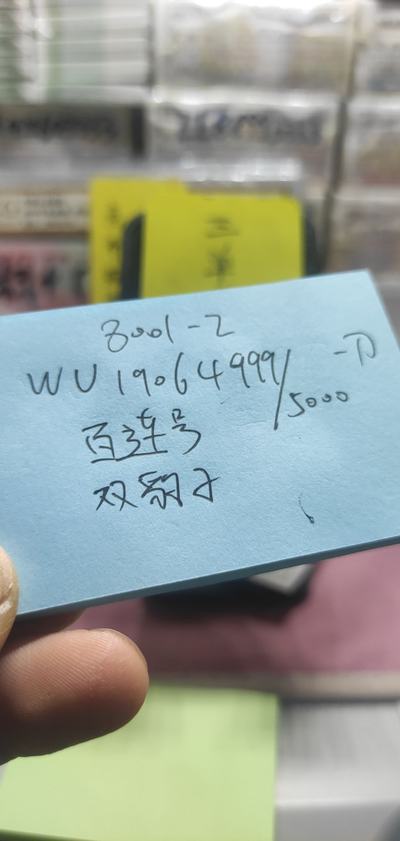 三
8001-2
WU19064999/5000
百连号
双豹子